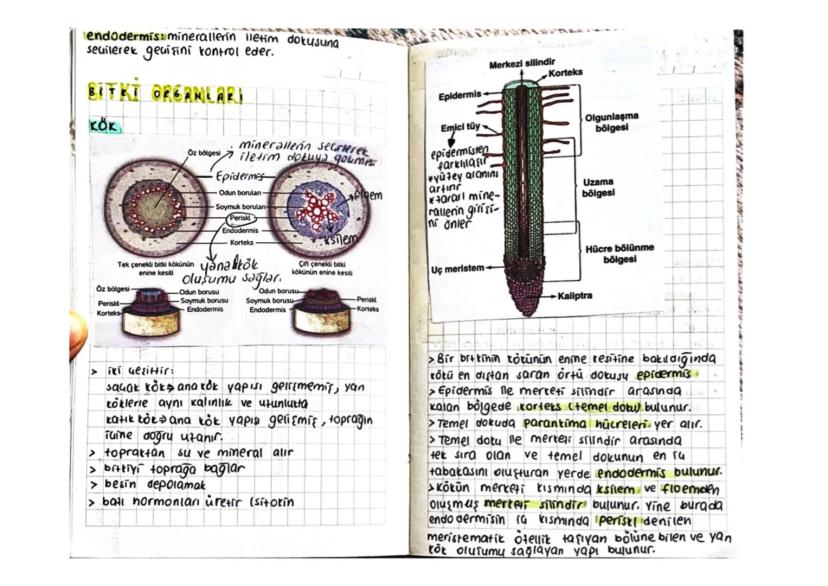 endodermis: minerallerin iletim dokusuna
seçilerek geçişini kontrol eder.
BİTKİ ORGANLARI
KÖK
Öz bölgesi
: minerallerin seçilerek
iletim dokuya
Epidermis
Odun boruları
Soymuk boruları
Periskl
Endodermis
Korteks
floem
ksilem
Tek çenekli bitki kökünün
enine kesiti
Çift çenekli bitki
kökünün enine kesiti
yanal kök
oluşumu sağlar.
Öz bölgesi
Periskl
Korteks
Odun borusu
Soymuk borusu
Endodermis
Odun borusu
Soymuk borusu
Endodermis
Periskl
Korteks
> iki çeşittir:
saçak kök → ana kök yapısı gelişmemiş, yan
köklerle aynı kalınlık ve uzunlukta
kazık kök → ana kök yapısı gelişmiş, toprağın
içine doğru uzanır.
> topraktan su ve mineral alır
> bitkiyi toprağa bağlar
> besin depolamak
> bazı hormonları üretir (sitokin
Merkezi silindir
Korteks
Epidermis
Emici tüy
epidermisten
farklılaşır
*yüzey alanını
artırır
*zararlı mine-
rallerin girişi-
ni önler
Olgunlaşma
bölgesi
Uzama
bölgesi
Hücre bölünme
bölgesi
Uç meristem
Kaliptra
> Bir bitkinin kökünün enine kesitine bakıldığında
kökü en dıştan saran örtü dokusu epidermis
> Epidermis ile merkezi silindir arasında
kalan bölgede korteks (temel doku) bulunur.
> Temel dokuda parankima hücreleri yer alır.
> Temel doku ile merkezi silindir arasında
tek sıra olan ve temel dokunun en iç
tabakasını oluşturan yerde endodermis bulunur.
> kökün merkezi kısmında ksilem ve floemden
oluşmuş merkezi silindir bulunur. Yine burada
endodermisin iç kısmında periskl denilen
meristematik özellik taşıyan bölünebilen ve yan
kök oluşumu sağlayan yapı bulunur.